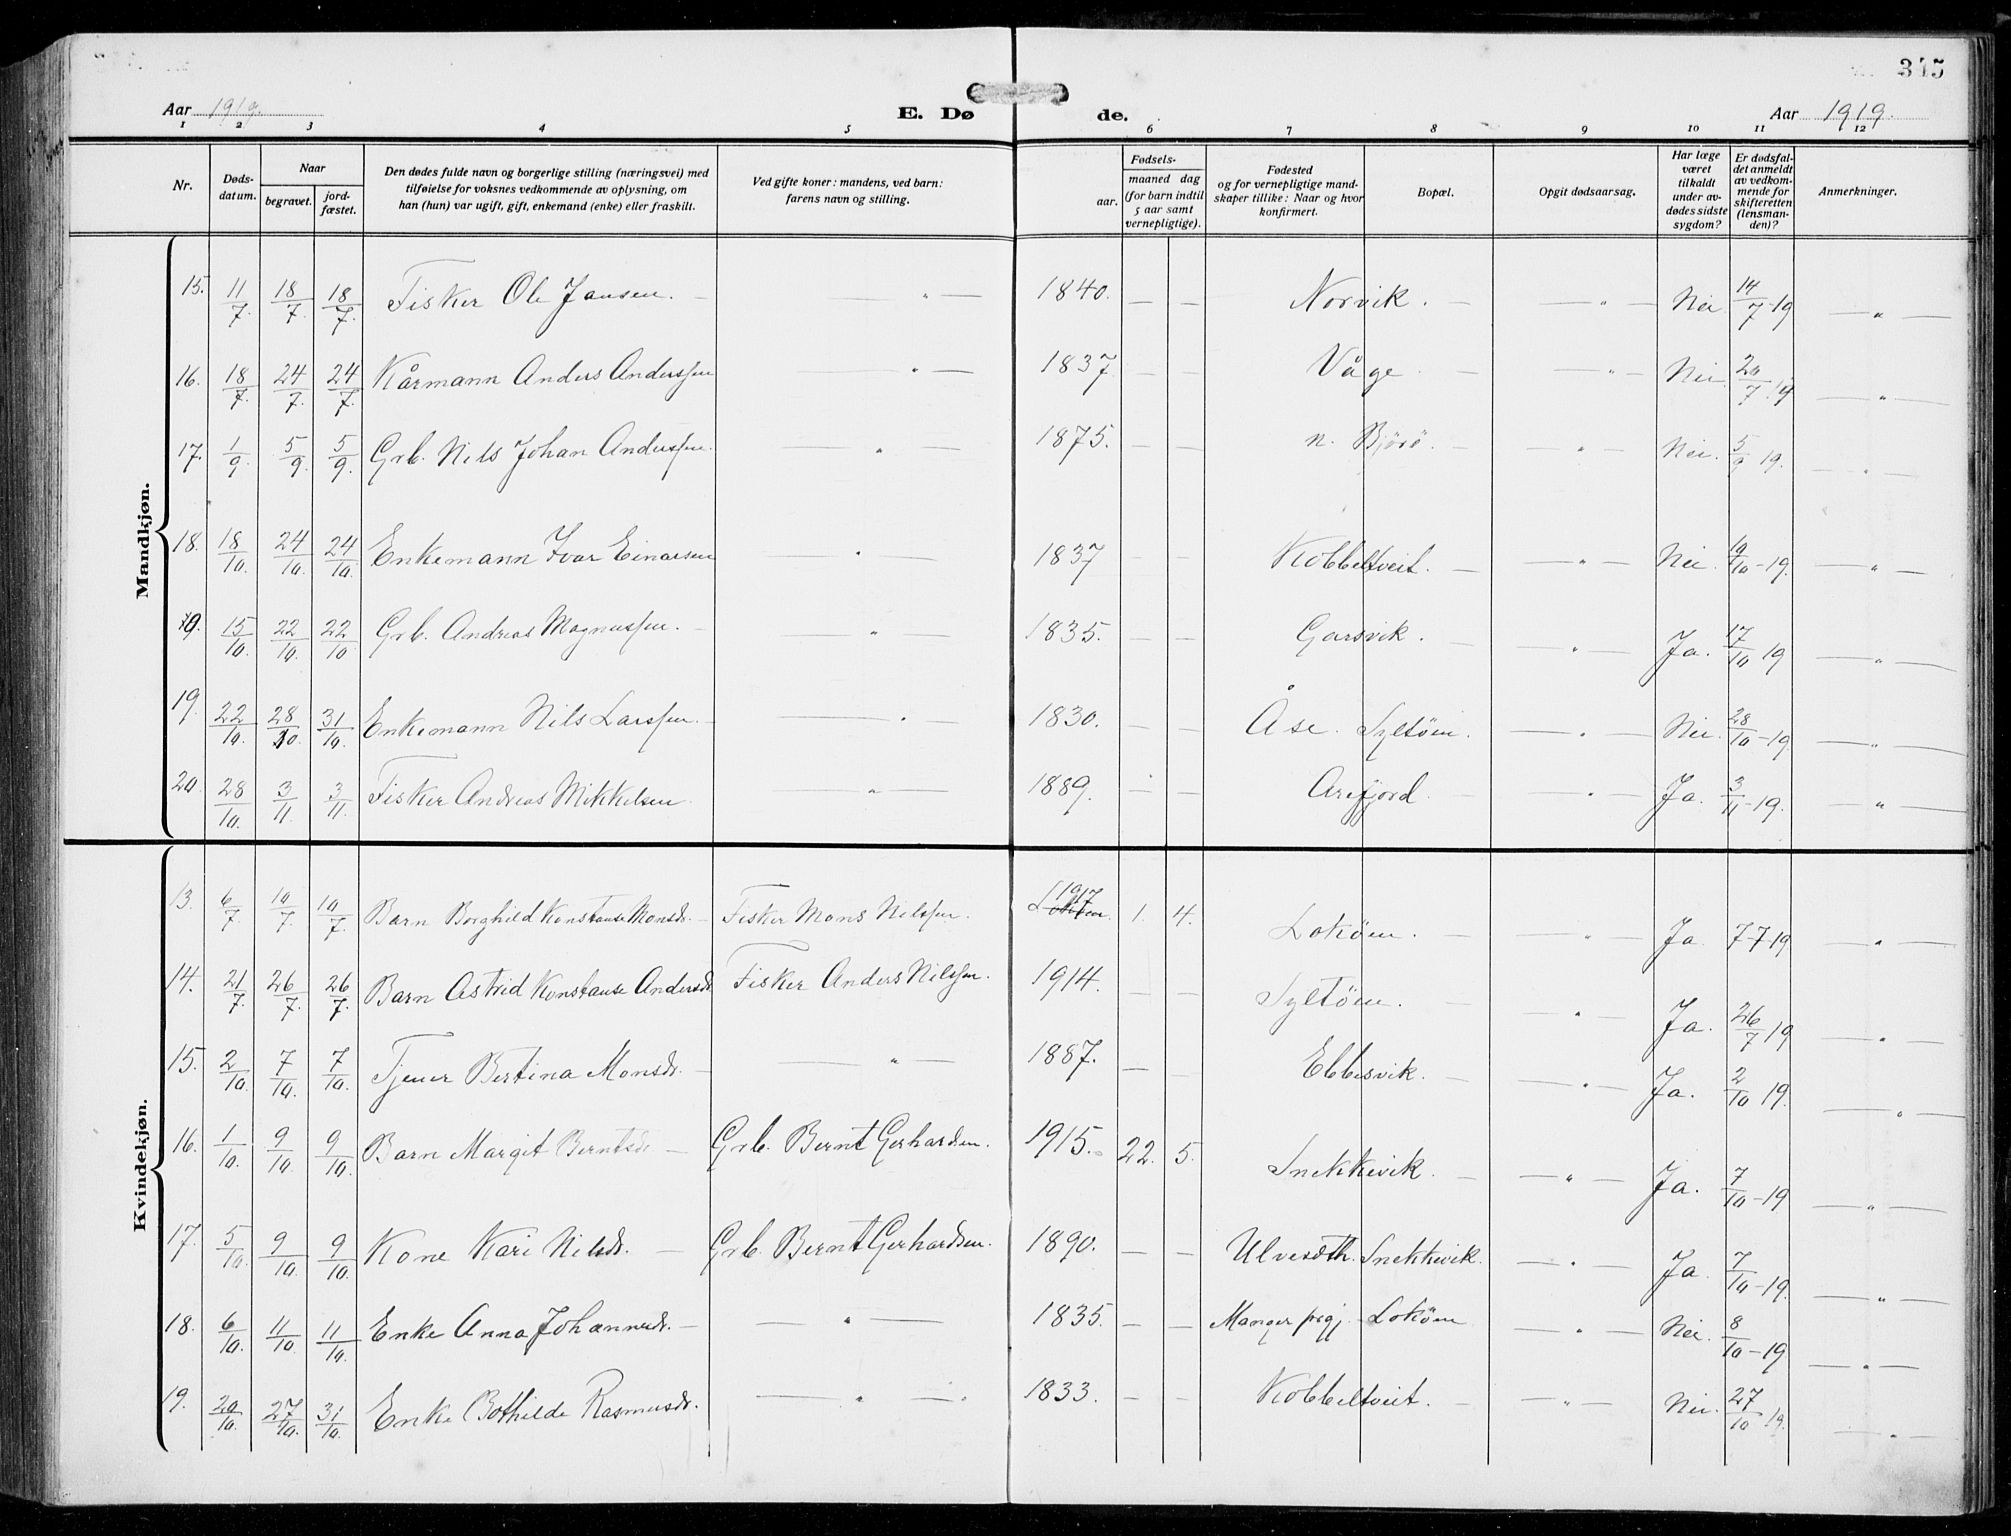 345
Aar 1919. E. Dø de. Aar 1919.
1 2 3 4 5 6 7 8 9 10 11 12
Nr. Døds-datum. Naar begravet. jord-fæstet. Den dødes fulde navn og borgerlige stilling (næringsvei) med tilføielse for voksnes vedkommende av oplysning, om han (hun) var ugift, gift, enkemand (enke) eller fraskilt. Ved gifte koner: mandens, ved barn: farens navn og stilling. Fødsels- aar. maaned dag (for barn indtil 5 aar samt vernepligtige). Fødested og for vernepligtige mand-skaper tillike: Naar og hvor konfirmert. Bopæl. Opgit dødsaarsag. Har læge været tilkaldt under av-dødes sidste sygdom? Er dødsfal-det anmeldt av vedkom-mende for skifteretten (lensman-den)? Anmerkninger.
Mandkjøn.
15. 11/7. 18/7. 18/7. Fisker Ole Jansen. — " — 1840. — — Norvik. — — " — Nei 14/7-19 — " —
16. 18/7. 24/7. 24/7. Kårmann Anders Anderssen — " — 1837 — — Våge. — — " — Nei 20/7 19 — " —
17. 1/9. 5/9. 5/9. Grb. Nils Johan Anderssen. — " — 1875. — — n. Bjørö. — — " — Nei. 5/9 19. — " —
18. 18/10. 24/10. 24/10. Enkemann Ivar Einarsen — " — 1837 — — Kobbeltveit. — — " — Nei. 19/10-19. — " —
19. 15/10. 22/10. 22/10 Grb. Andreas Magnussen. — " — 1835. — — Garsvik. — — " — Ja. 17/10 19 — " —
19. 22/10. 28/10. 31/10. Enkemann Nils Larssen. — " — 1830. — — Åse. Syltöen. — " — Nei. 28/10-19 — " —
20. 28/10. 3/11. 3/11. Fisker Andreas Mikkelsen — " — 1889. — — Arefjord — — " — Ja. 3/11-19. — " —
Kvindekjøn.
13. 6/7. 10/7. 10/7. Barn Borghild Konstanse Monsdr. — Fisker Mons Nilssen. 1917 1. 4. Loköen. — — " — Ja 7-7-19 — " —
14. 21/7. 26/7. 26/7. Barn Astrid Konstanse Andersdr. Fisker Anders Nilssen. 1914. — — Syltöen. — — " — Ja. 26/7 19 — " —
15. 2/10. 7/10. 7/10. Tjener Bertina Monsdr. — — " — 1887. — — Ebbesvik. — — " — Ja. 2/10 19. — " —
16. 1/10. 9/10. 9/10. Barn Margit Berntsdr — Grb. Bernt Gerhardsen. 1915. 22. 5. Snekkevik. — — " — Ja. 7/10-19 — " —
17. 5/10. 9/10. 9/10. Kone Kari Nilsdr. — Grb. Bernt Gerhardsen. 1890. — — Ulvesæth. Snekkevik. — " — Ja. 7/10-19. — " —
18. 6/10. 11/10. 11/10. Enke Anna Johannesdr. — — " — 1835. — — Manger prgj. Loköen — " — Nei. 8/10-19 — " —
19. 20/10. 27/10. 31/10. Enke Bothilde Rasmusdr. — " — 1833. — — Kobbeltveit. — — " — Nei. 27/10 19. — " —